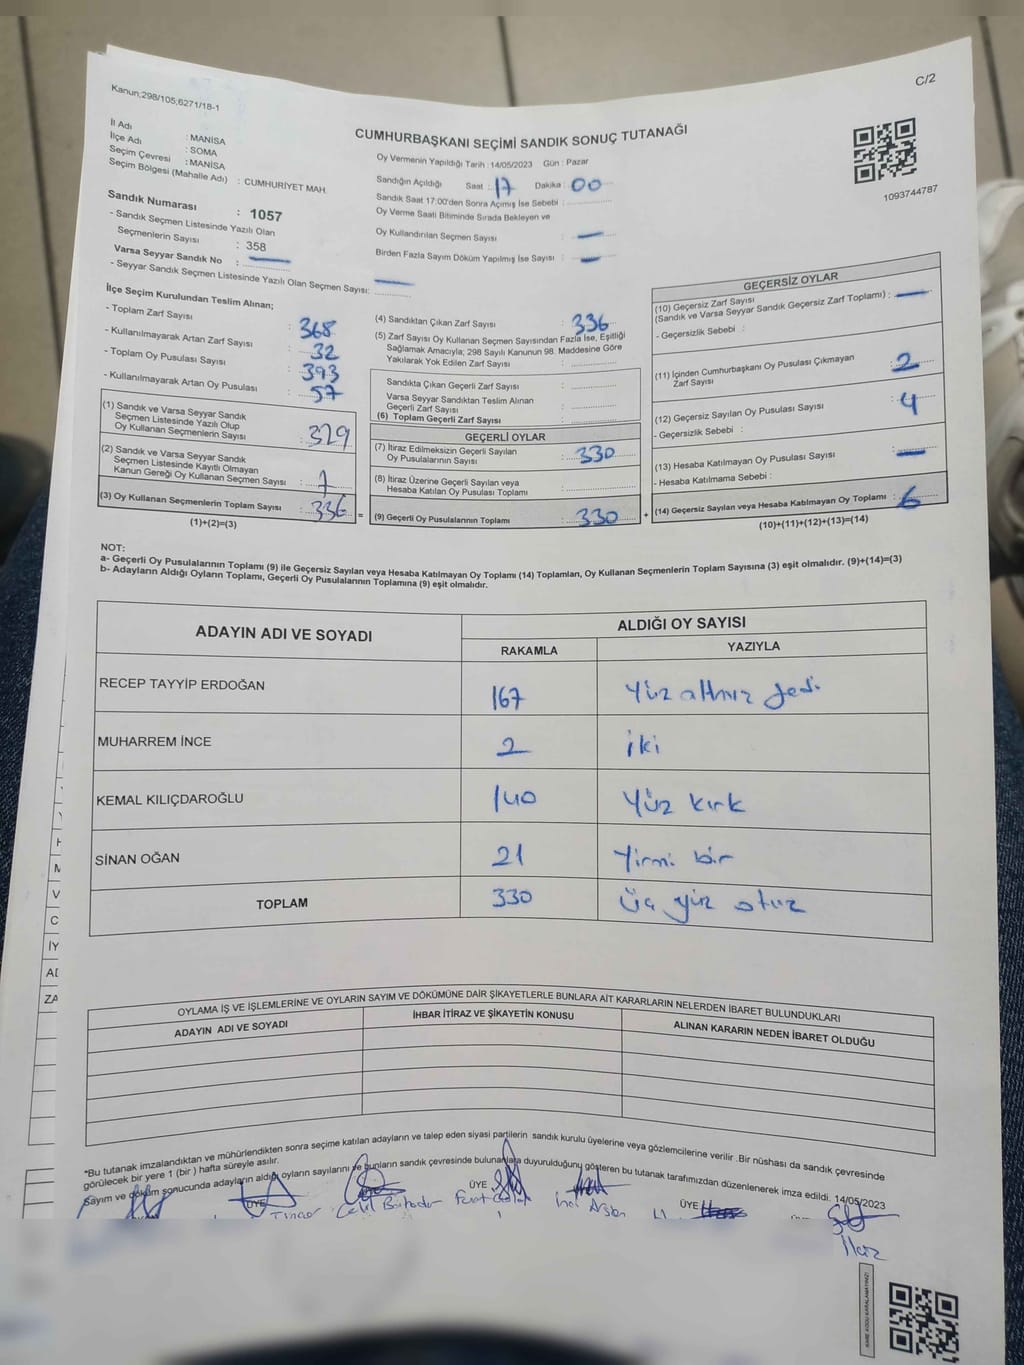 C/2
Kanun;298/105;6271/18-1
CUMHURBAŞKANI SEÇİMİ SANDIK SONUÇ TUTANAĞI
İl Adı : MANİSA
İlçe Adı : SOMA
Seçim Çevresi : MANİSA
Seçim Bölgesi (Mahalle Adı) : CUMHURİYET MAH.
Sandık Numarası : 1057
- Sandık Seçmen Listesinde Yazılı Olan
Seçmenlerin Sayısı : 358
Varsa Seyyar Sandık No :
- Seyyar Sandık Seçmen Listesinde Yazılı Olan Seçmen Sayısı:
Oy Vermenin Yapıldığı Tarih : 14/05/2023 Gün : Pazar
Sandığın Açıldığı Saat : 17 Dakika : 00
Sandık Saat 17:00'den Sonra Açımış İse Sebebi :
Oy Verme Saati Bitiminde Sırada Bekleyen ve
Oy Kullandırılan Seçmen Sayısı : —
Birden Fazla Sayım Döküm Yapılmış İse Sayısı : —
1093744787
İlçe Seçim Kurulundan Teslim Alınan;
- Toplam Zarf Sayısı : 368
- Kullanılmayarak Artan Zarf Sayısı : 32
- Toplam Oy Pusulası Sayısı : 393
- Kullanılmayarak Artan Oy Pusulası : 57
(1) Sandık ve Varsa Seyyar Sandık
Seçmen Listesinde Yazılı Olup
Oy Kullanan Seçmenlerin Sayısı : 329
(2) Sandık ve Varsa Seyyar Sandık
Seçmen Listesinde Kayıtlı Olmayan
Kanun Gereği Oy Kullanan Seçmen Sayısı : 7
(3) Oy Kullanan Seçmenlerin Toplam Sayısı : 336 =
(1)+(2)=(3)
(4) Sandıktan Çıkan Zarf Sayısı : 336
(5) Zarf Sayısı Oy Kullanan Seçmen Sayısından Fazla İse, Eşitliği
Sağlamak Amacıyla; 298 Sayılı Kanunun 98. Maddesine Göre
Yakılarak Yok Edilen Zarf Sayısı :
Sandıkta Çıkan Geçerli Zarf Sayısı :
Varsa Seyyar Sandıktan Teslim Alınan
Geçerli Zarf Sayısı :
(6) Toplam Geçerli Zarf Sayısı :
GEÇERLİ OYLAR
(7) İtiraz Edilmeksizin Geçerli Sayılan
Oy Pusulalarının Sayısı : 330
(8) İtiraz Üzerine Geçerli Sayılan veya
Hesaba Katılan Oy Pusulası Toplamı :
(9) Geçerli Oy Pusulalarının Toplamı : 330 +
GEÇERSİZ OYLAR
(10) Geçersiz Zarf Sayısı
(Sandık ve Varsa Seyyar Sandık Geçersiz Zarf Toplamı) : —
- Geçersizlik Sebebi :
(11) İçinden Cumhurbaşkanı Oy Pusulası Çıkmayan
Zarf Sayısı : 2
(12) Geçersiz Sayılan Oy Pusulası Sayısı : 4
- Geçersizlik Sebebi :
(13) Hesaba Katılmayan Oy Pusulası Sayısı : —
- Hesaba Katılmama Sebebi :
(14) Geçersiz Sayılan veya Hesaba Katılmayan Oy Toplamı : 6
(10)+(11)+(12)+(13)=(14)
NOT:
a- Geçerli Oy Pusulalarının Toplamı (9) ile Geçersiz Sayılan veya Hesaba Katılmayan Oy Toplamı (14) Toplamları, Oy Kullanan Seçmenlerin Toplam Sayısına (3) eşit olmalıdır. (9)+(14)=(3)
b- Adayların Aldığı Oyların Toplamı, Geçerli Oy Pusulalarının Toplamına (9) eşit olmalıdır.
ADAYIN ADI VE SOYADI ALDIĞI OY SAYISI
RAKAMLA YAZIYLA
RECEP TAYYİP ERDOĞAN 167 Yüz altmız yedi
MUHARREM İNCE 2 iki
KEMAL KILIÇDAROĞLU 140 Yüz kırk
SİNAN OĞAN 21 Yirmi bir
TOPLAM 330 üç yüz otuz
OYLAMA İŞ VE İŞLEMLERİNE VE OYLARIN SAYIM VE DÖKÜMÜNE DAİR ŞİKAYETLERLE BUNLARA AİT KARARLARIN NELERDEN İBARET BULUNDUKLARI
ADAYIN ADI VE SOYADI İHBAR İTİRAZ VE ŞİKAYETİN KONUSU ALINAN KARARIN NEDEN İBARET OLDUĞU
*Bu tutanak imzalandıktan ve mühürlendikten sonra seçime katılan adayların ve talep eden siyasi partilerin sandık kurulu üyelerine veya gözlemcilerine verilir .Bir nüshası da sandık çevresinde
görülecek bir yere 1 (bir ) hafta süreyle asılır.
Sayım ve döküm sonucunda adayların aldığı oyların sayılarını ve bunların sandık çevresinde bulunanlara duyurulduğunu gösteren bu tutanak tarafımızdan düzenlenerek imza edildi. 14/05/2023
ÜYE ÜYE ÜYE